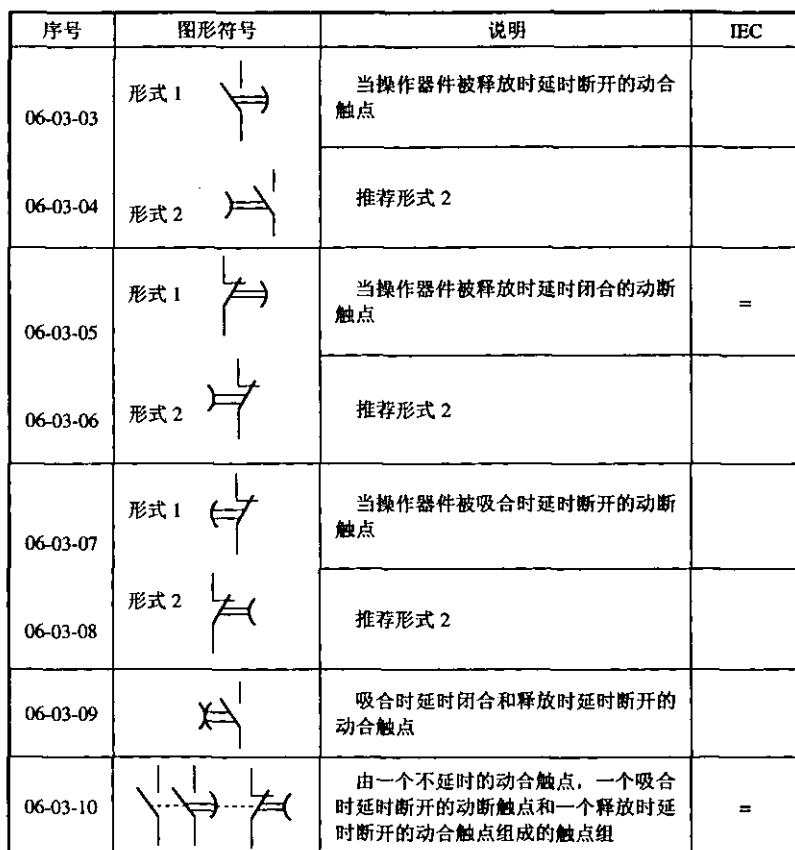 序号 图形符号 说明 IEC
06-03-03
形式 1
当操作器件被释放时延时断开的动合
触点
06-03-04
形式 2
推荐形式 2
06-03-05
形式 1
当操作器件被释放时延时闭合的动断
触点
=
06-03-06
形式 2
推荐形式 2
06-03-07
形式 1
当操作器件被吸合时延时断开的动断
触点
06-03-08
形式 2
推荐形式 2
06-03-09
吸合时延时闭合和释放时延时断开的
动合触点
06-03-10
由一个不延时的动合触点，一个吸合
时延时断开的动断触点和一个释放时延
时断开的动合触点组成的触点组
=